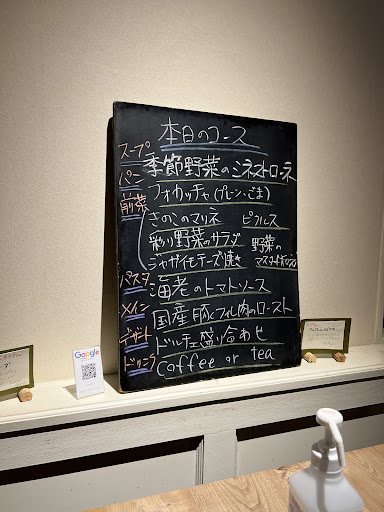 本日のコース
スープ 季節野菜のミネストローネ
パン フォカッチャ(プレーン・ごま)
前菜 きのこのマリネ ピクルス
彩り野菜のサラダ 野菜の
ジャガイモチーズ焼 マスタード
パスタ 海老のトマトソース
メイン 国産豚ヒレ肉のロースト
デザート ドルチェ盛り合わせ
ドリンク coffee or tea
Google